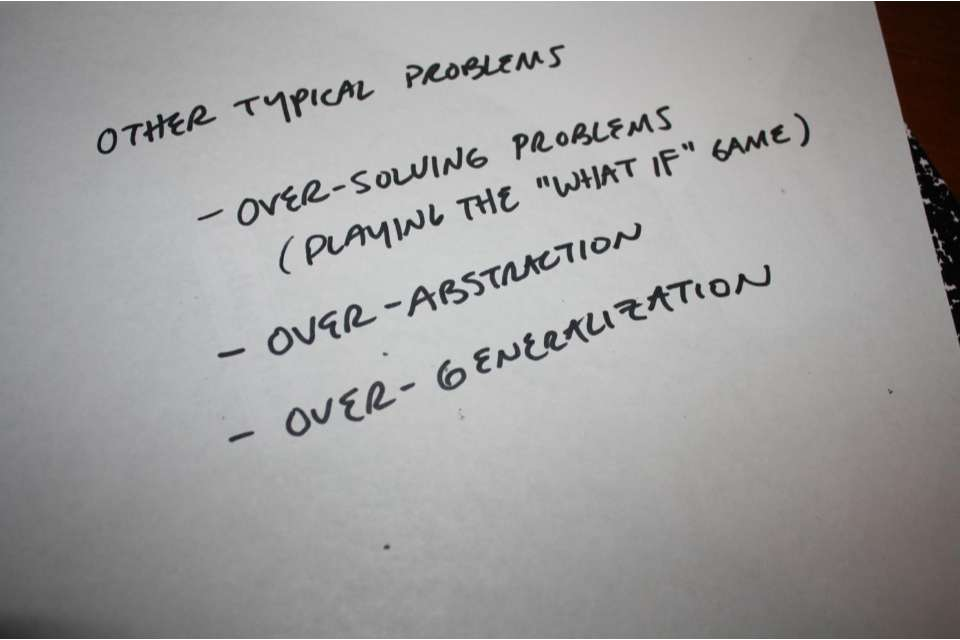 OTHER TYPICAL PROBLEMS
- OVER-SOLVING PROBLEMS
(PLAYING THE "WHAT IF" GAME)
- OVER-ABSTRACTION
- OVER-GENERALIZATION